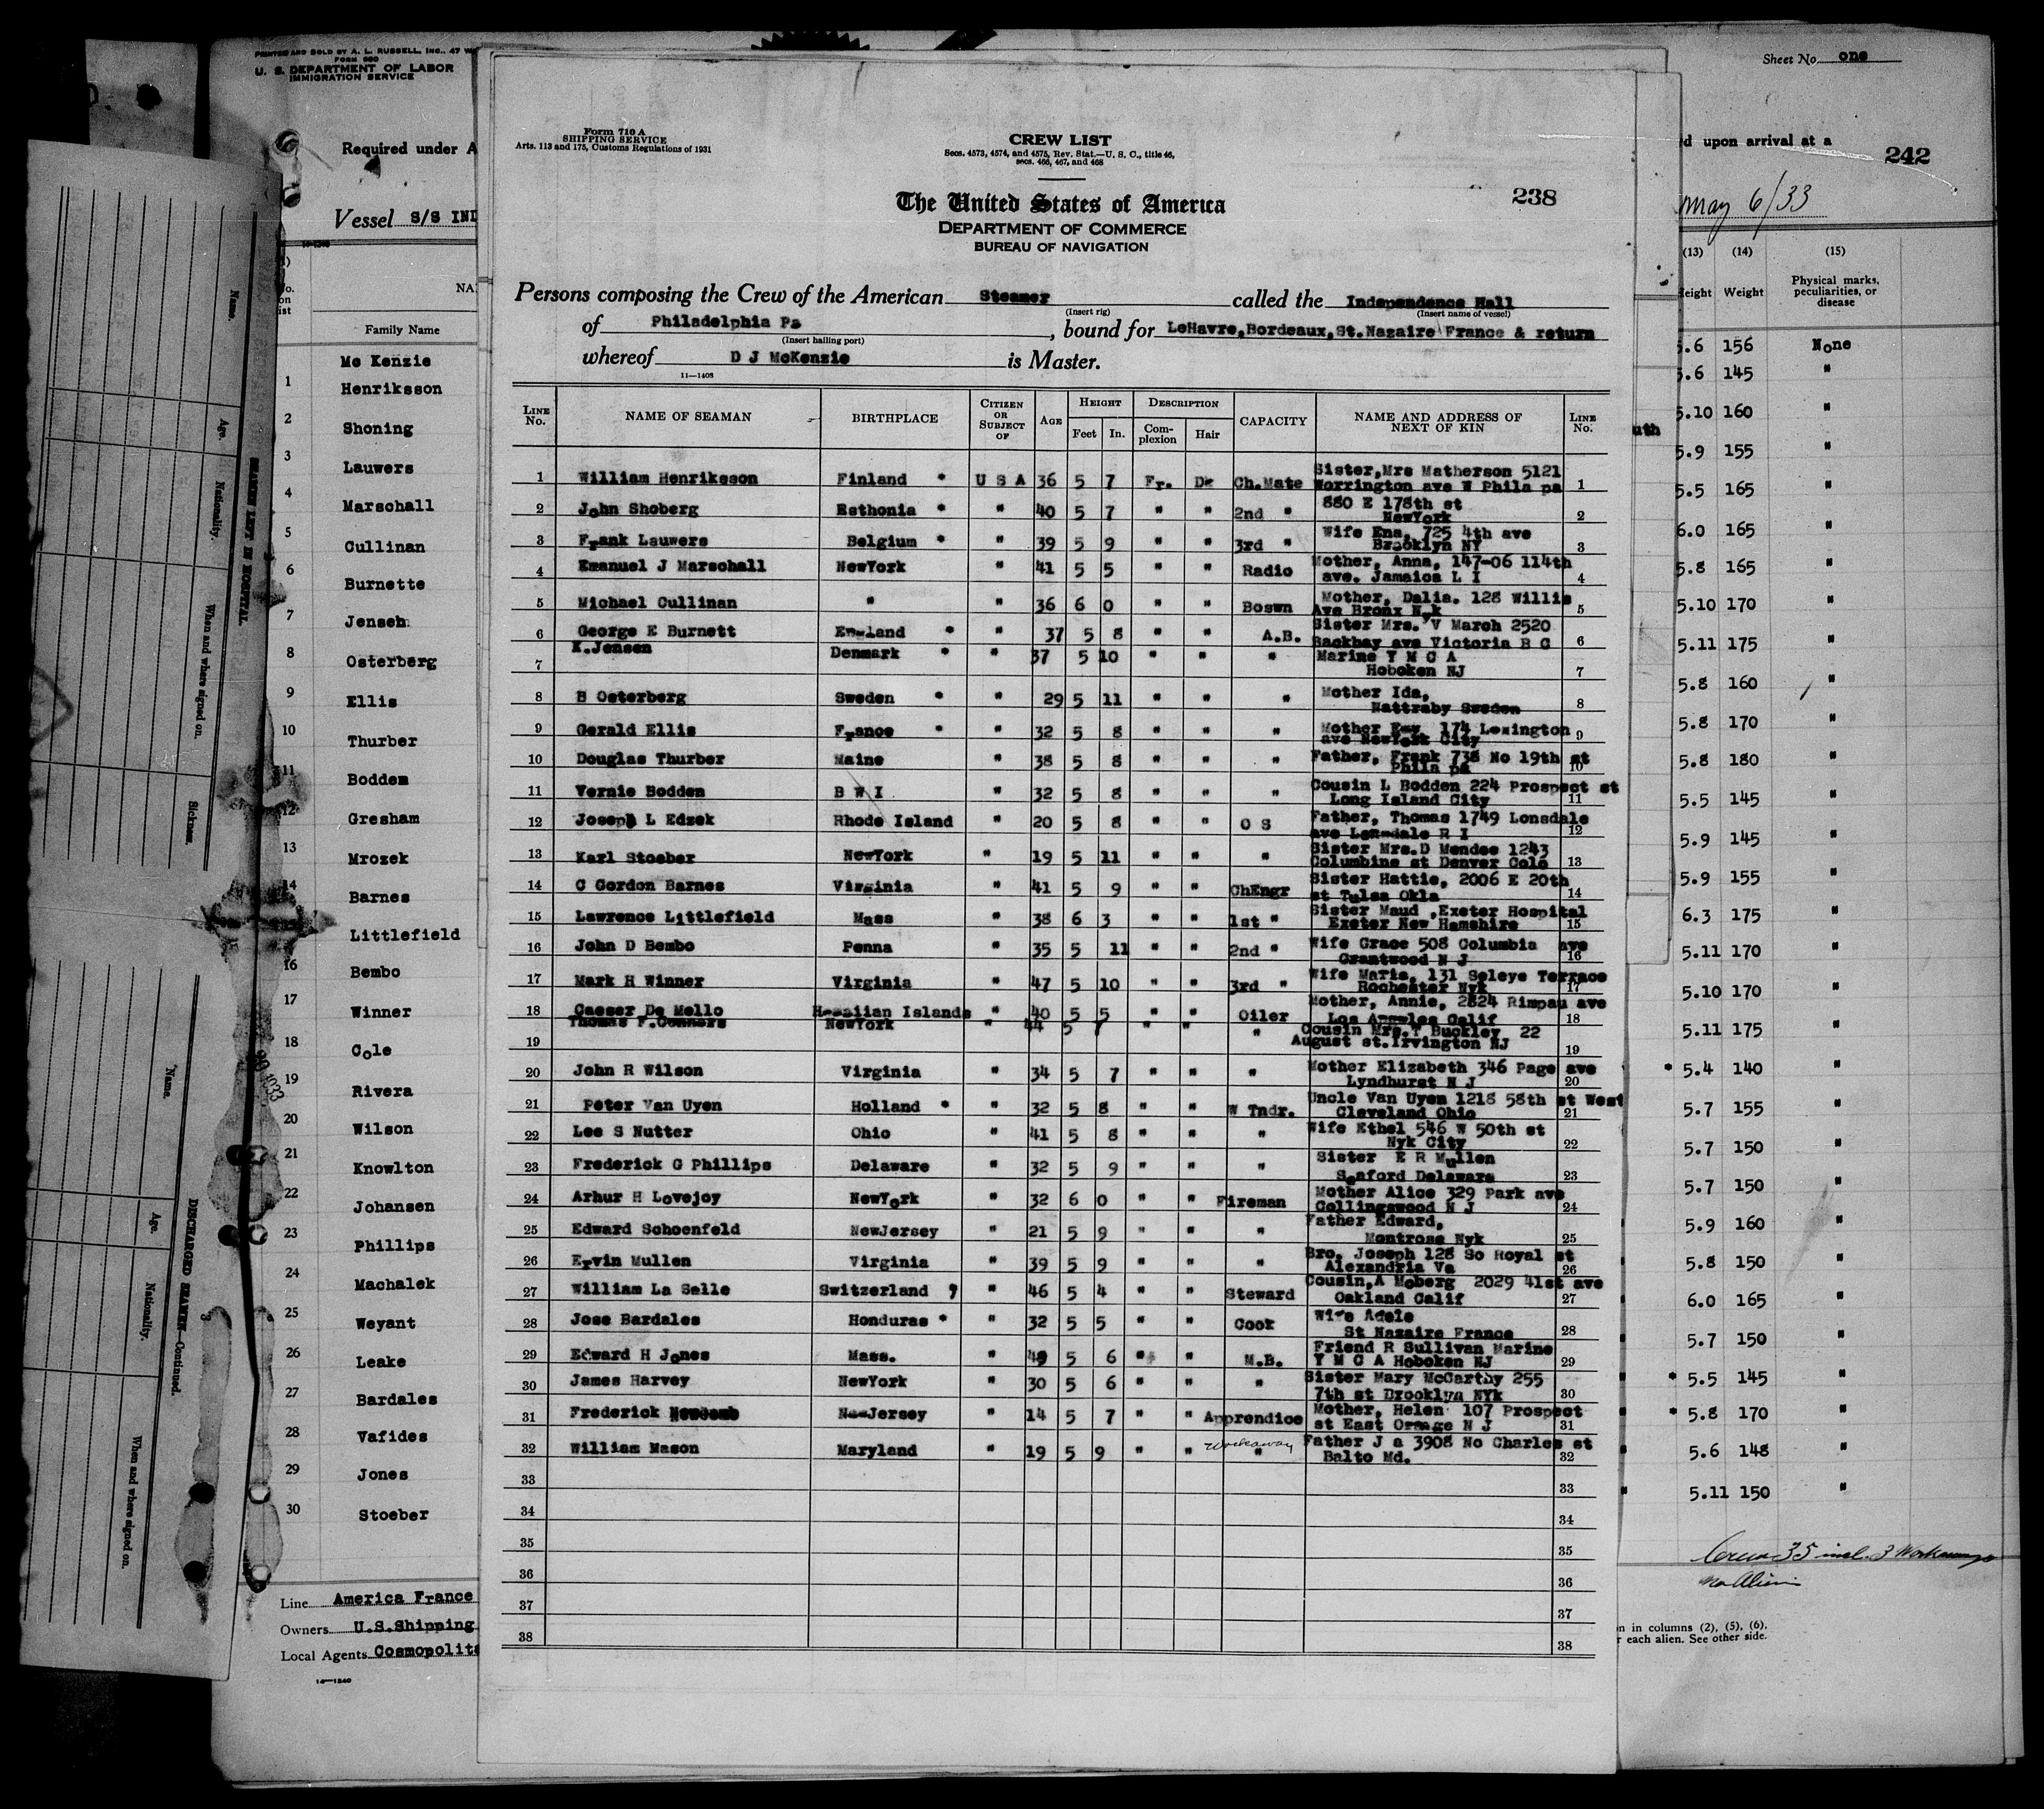 PRINTED AND SOLD BY A. L. RUSSELL, INC., 47 W
FORM 680
U. S. DEPARTMENT OF LABOR
IMMIGRATION SERVICE
Required under A
Vessel S/S IND
Family Name
Mc Kenzie
1 Henriksson
2 Shoning
3 Lauwers
4 Marschall
5 Cullinan
6 Burnette
7 Jensen
8 Osterberg
9 Ellis
10 Thurber
11 Boddem
12 Gresham
13 Mrozek
14 Barnes
15 Littlefield
16 Bembo
17 Winner
18 Cole
19 Rivera
20 Wilson
21 Knowlton
22 Johansen
23 Phillips
24 Machalek
25 Weyant
26 Leake
27 Bardales
28 Vafides
29 Jones
30 Stoeber
Line America France
Owners U.S.Shipping
Local Agents Cosmopolita
14—1240
Name.
Age.
Nationality.
When and where signed on.
Sickness.
SEAMEN LEFT IN HOSPITAL.
Name.
Age.
Nationality.
When and where signed on.
DISCHARGED SEAMEN—Continued.
Form 710 A
SHIPPING SERVICE
Arts. 113 and 175, Customs Regulations of 1931
CREW LIST
Secs. 4573, 4574, and 4575, Rev. Stat.—U. S. C., title 46,
secs. 466, 467, and 468
238
The United States of America
DEPARTMENT OF COMMERCE
BUREAU OF NAVIGATION
Persons composing the Crew of the American Steamer called the Independence Hall
(Insert rig) (Insert name of vessel)
of Philadelphia Pa, bound for LeHavre,Bordeaux,St.Nazaire France & return
(Insert hailing port)
whereof D J McKenzie is Master.
11—1408
LINE No. NAME OF SEAMAN BIRTHPLACE CITIZEN OR SUBJECT OF AGE HEIGHT Feet In. DESCRIPTION Complexion Hair CAPACITY NAME AND ADDRESS OF NEXT OF KIN LINE No.
1 William Henriksson Finland * U S A 36 5 7 Fr. Dk Ch.Mate Sister,Mrs Matherson 5121
Worrington ave W Phila pa 1
2 John Shoberg Esthonia * " 40 5 7 " " 2nd " 880 E 178th st
NewYork 2
3 Frank Lauwers Belgium * " 39 5 9 " " 3rd " Wife Ena, 725 4th ave
Brooklyn NY 3
4 Emanuel J Marschall NewYork " 41 5 5 " " Radio Mother, Anna, 147-06 114th
ave. Jamaica L I 4
5 Michael Cullinan " " 36 6 0 " " Boswn Mother, Dalia. 128 Willis
Ave Bronx N.k 5
6 George E Burnett England * " 37 5 8 " " A.B. Sister Mrs. V March 2520
Backbay ave Victoria B C 6
7 K.Jensen Denmark * " 37 5 10 " " " Marine Y M C A
Hoboken NJ 7
8 B Osterberg Sweden * " 29 5 11 " " " Mother Ida,
Nattraby Sweden 8
9 Gerald Ellis France * " 32 5 8 " " " Mother 174 Lexington
ave NewYork City 9
10 Douglas Thurber Maine " 38 5 8 " " " Father, Frank 738 No 19th st
Phila pa 10
11 Vernie Bodden B W I " 32 5 8 " " " Cousin L Bodden 224 Prospect st
Long Island City 11
12 Joseph L Edzek Rhode Island " 20 5 8 " " O S Father, Thomas 1749 Lonsdale
ave Lonsdale R I 12
13 Karl Stoeber NewYork " 19 5 11 " " " Sister Mrs.D Mendee 1243
Columbine st Denver Colo 13
14 C Gordon Barnes Virginia " 41 5 9 " " ChEngr Sister Hattie, 2006 E 20th
st Tulsa Okla 14
15 Lawrence Littlefield Mass " 38 6 3 " " 1st " Sister Maud ,Exeter Hospital
Exeter New Hamshire 15
16 John D Bembo Penna " 35 5 11 " " 2nd " Wife Grace 508 Columbia ave
Grantwood N J 16
17 Mark H Winner Virginia " 47 5 10 " " 3rd " Wife Marie, 131 Seleye Terrace
Rochester Nyk 17
18 Caeser De Mello Hawaiian Islands " 40 5 5 " " Oiler Mother, Annie, 2824 Rimpau ave
Los Angeles Calif 18
19 Thomas F.Conners NewYork " 44 5 7 " " " Cousin Mrs.T Buckley 22
August st.Irvington NJ 19
20 John R Wilson Virginia " 34 5 7 " " " Mother Elizabeth 346 Page ave
Lyndhurst N J 20
21 Peter Van Uyen Holland * " 32 5 8 " " W Tndr. Uncle Van Uyen 1218 58th st West
Cleveland Ohio 21
22 Lee S Nutter Ohio " 41 5 8 " " " Wife Ethel 546 W 50th st
Nyk City 22
23 Frederick G Phillips Delaware " 32 5 9 " " " Sister E R Mullen
Seaford Delaware 23
24 Arhur H Lovejoy NewYork " 32 6 0 " " Fireman Mother Alice 329 Park ave
Collingswood N J 24
25 Edward Schoenfeld NewJersey " 21 5 9 " " " Father Edward,
Montrose Nyk 25
26 Ervin Mullen Virginia " 39 5 9 " " " Bro. Joseph 128 So Royal st
Alexandria Va 26
27 William La Selle Switzerland " 46 5 4 " " Steward Cousin,A Moberg 2029 41st ave
Oakland Calif 27
28 Jose Bardales Honduras * " 32 5 5 " " Cook Wife Adele
St Nazaire France 28
29 Edward H Jones Mass. " 49 5 6 " " M.B. Friend R Sullivan Marine
Y M C A Hoboken NJ 29
30 James Harvey NewYork " 30 5 6 " " " Sister Mary McCarthy 255
7th st Brooklyn NYk 30
31 Frederick Newcomb NewJersey " 14 5 7 " " Apprendice Mother, Helen 107 Prospect
st East Orange N J 31
32 William Mason Maryland " 19 5 9 " " workaway " Father J a 3908 No Charles st
Balto Md. 32
33 33
34 34
35 35
36 36
37 37
38 38
Sheet No. one
ed upon arrival at a
242
May 6/33
(13) (14) (15)
Height Weight Physical marks, peculiarities, or disease
5.6 156 None
5.6 145 "
5.10 160 "
5.9 155 "
5.5 165 "
6.0 165 "
5.8 165 "
5.10 170 "
5.11 175 "
5.8 160 "
5.8 170 "
5.8 180 "
5.5 145 "
5.9 145 "
5.9 155 "
6.3 175 "
5.11 170 "
5.10 170 "
5.11 175 "
* 5.4 140 "
5.7 155 "
5.7 150 "
5.7 150 "
5.9 160 "
5.8 150 "
6.0 165 "
5.7 150 "
* 5.5 145 "
* 5.8 170 "
5.6 148 "
5.11 150 "
Crew 35 incl. 3 Workaways
no Aliens
n in columns (2), (5), (6),
r each alien. See other side.